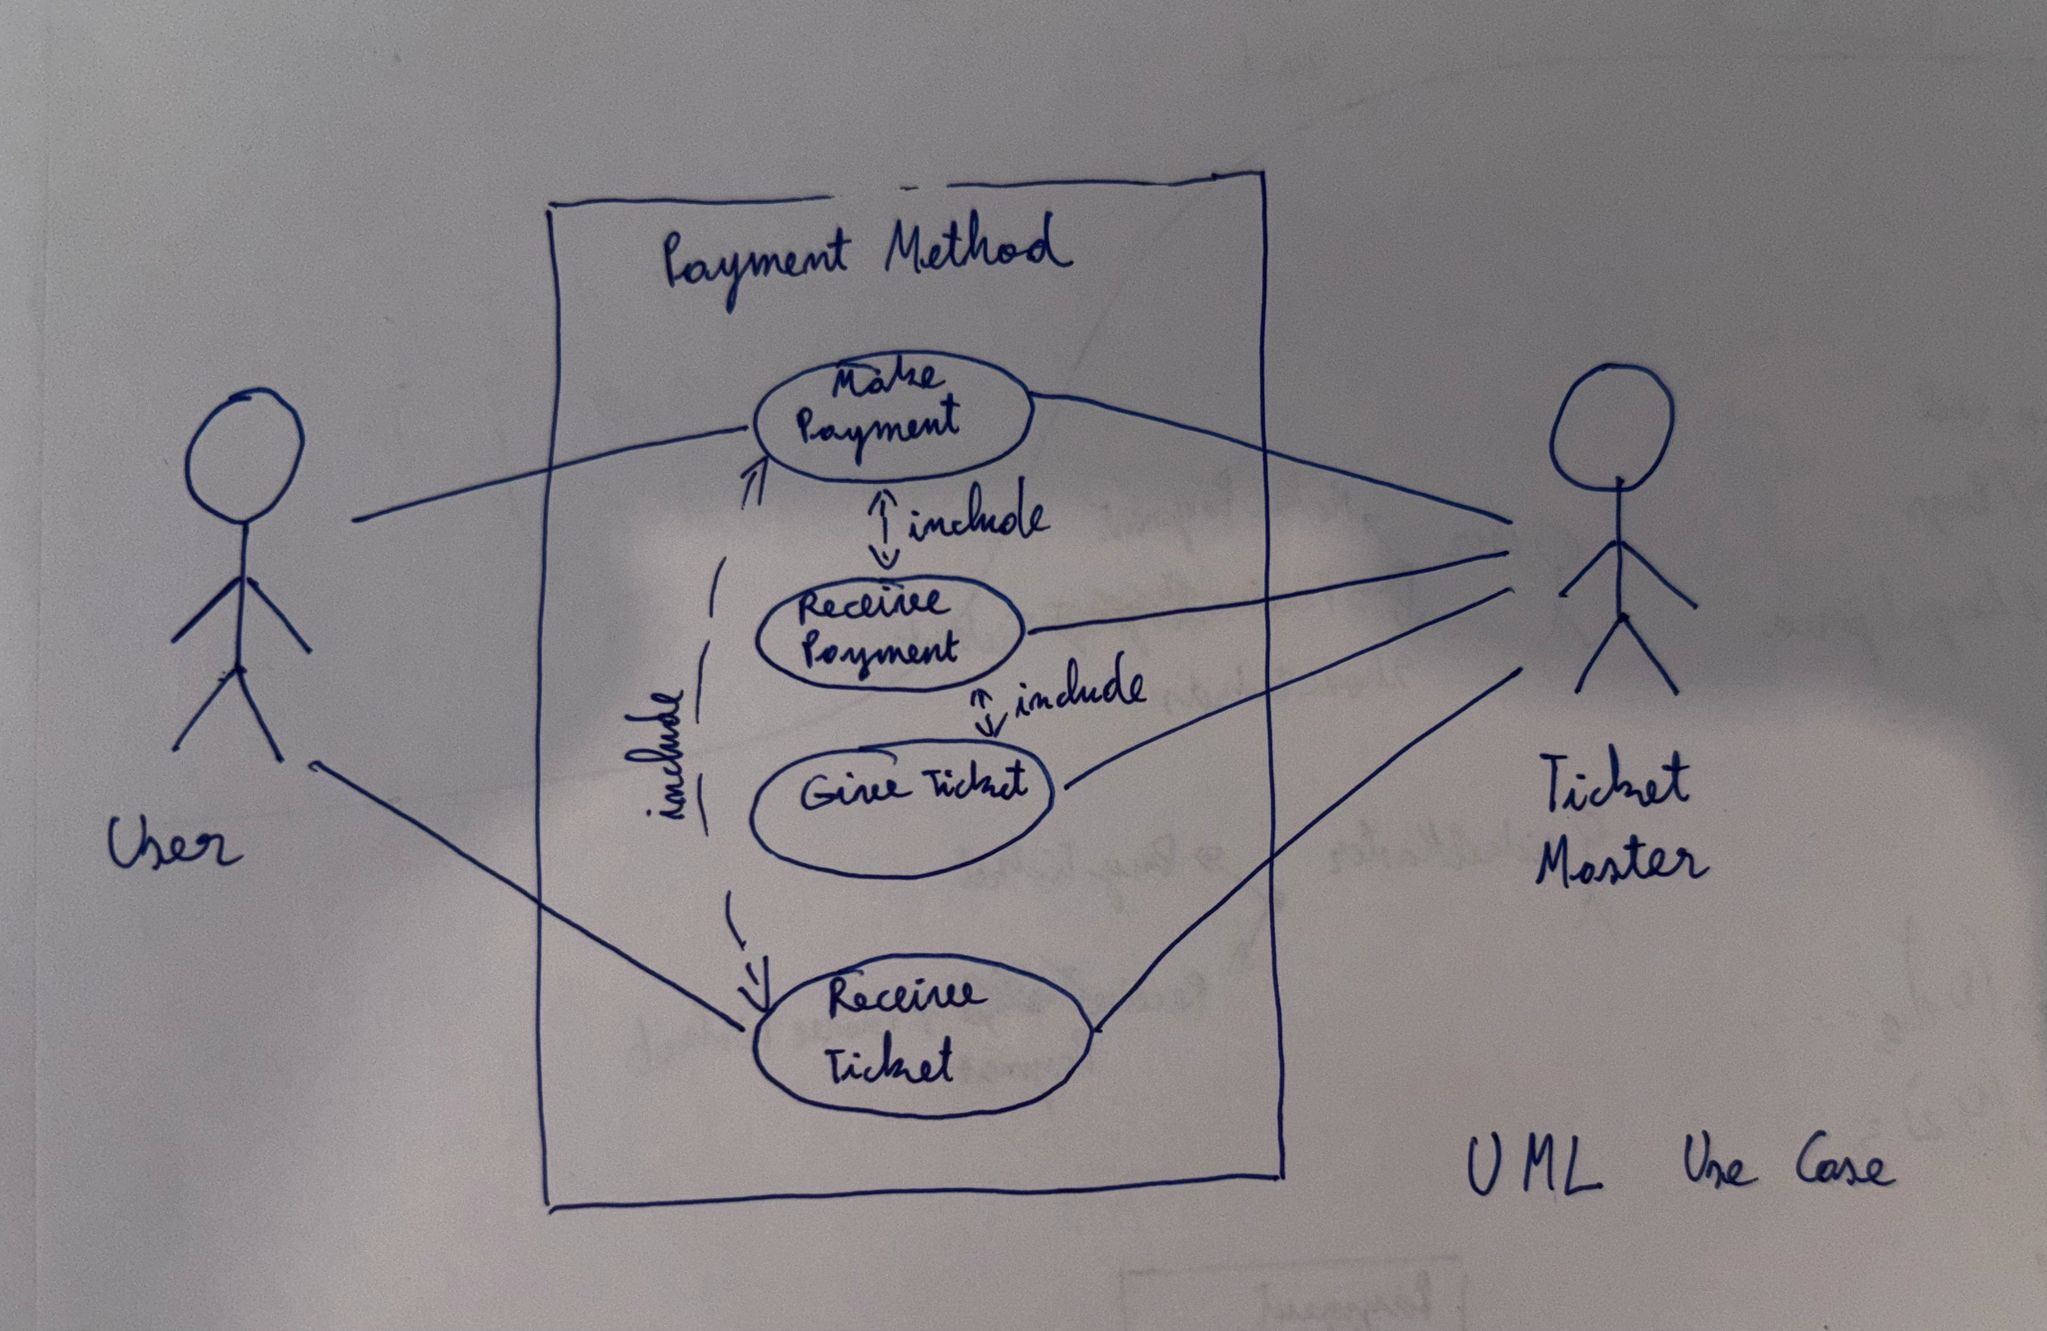 Payment Method
Make
Payment
include
Receive
Payment
include
include
Give Ticket
Receive
Ticket
User
Ticket
Master
UML Use Case